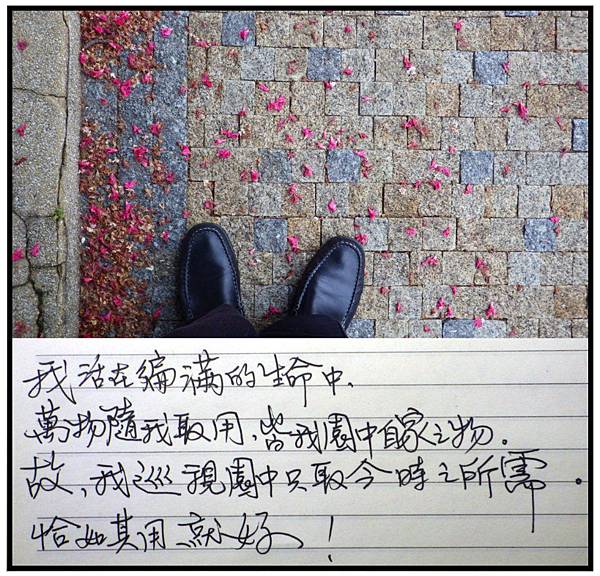 我活在編滿的生命中.
萬物隨我取用,皆我園中自家之物。
故、我巡視園中只取今時之所需.
恰如其用就好!